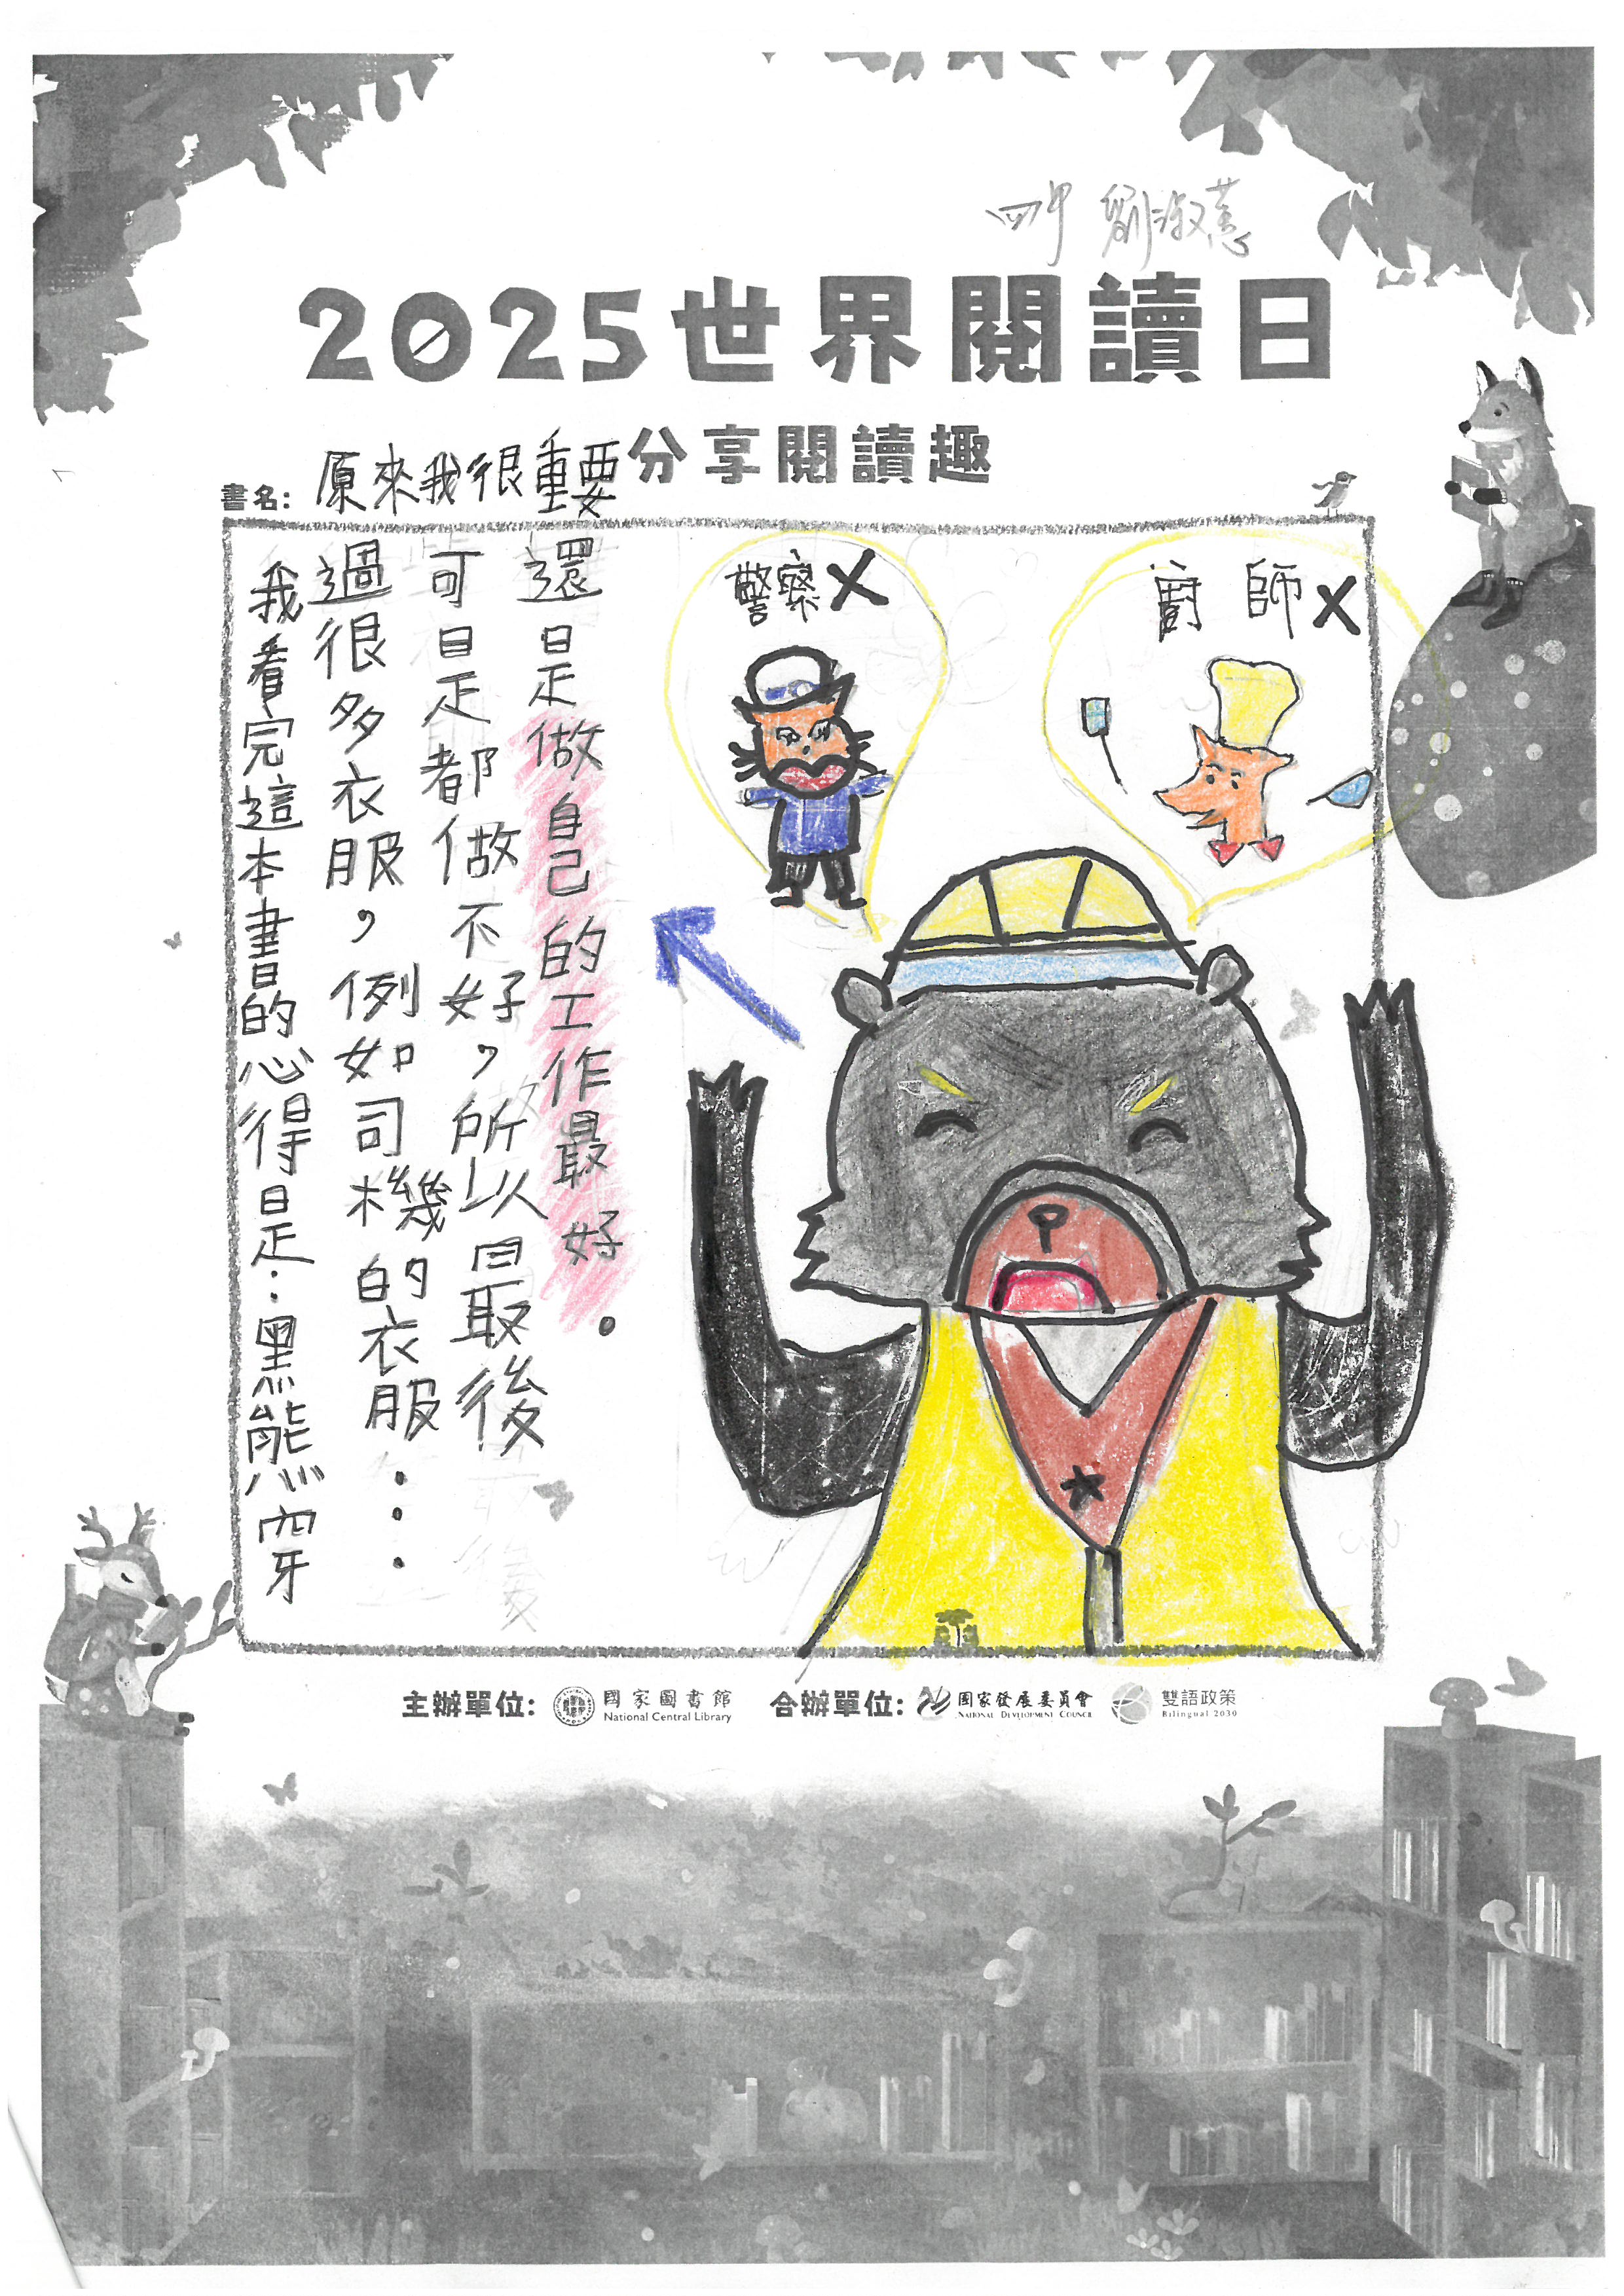 四甲 劉淑蕙
2025世界閱讀日
分享閱讀趣
書名: 原來我很重要
我看完這本書的心得是:黑熊穿
過很多衣服,例如司機的衣服...
可是都做不好,所以最後
還是做自己的工作最好。
警察X
廚師X
主辦單位: 國家圖書館 National Central Library 合辦單位: 國家發展委員會 National Development Council 雙語政策 Bilingual 2030